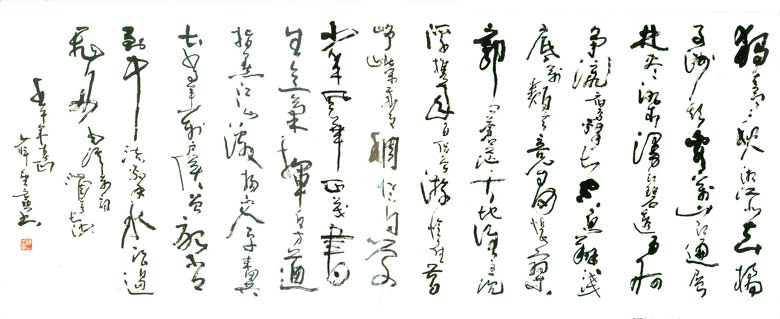 独立寒秋湘江北去橘
子洲头看万山红遍层
林尽染漫江碧透百舸
争流鹰击长空鱼翔浅
底万类霜天竞自由怅寥
廓问苍茫大地谁主沉
浮携来百侣曾游忆往昔
峥嵘岁月稠恰同学
少年风华正茂书
生意气挥斥方遒
指点江山激扬文字粪
土当年万户侯曾记否
到中流击水浪遏
飞舟 毛泽东词
长沙